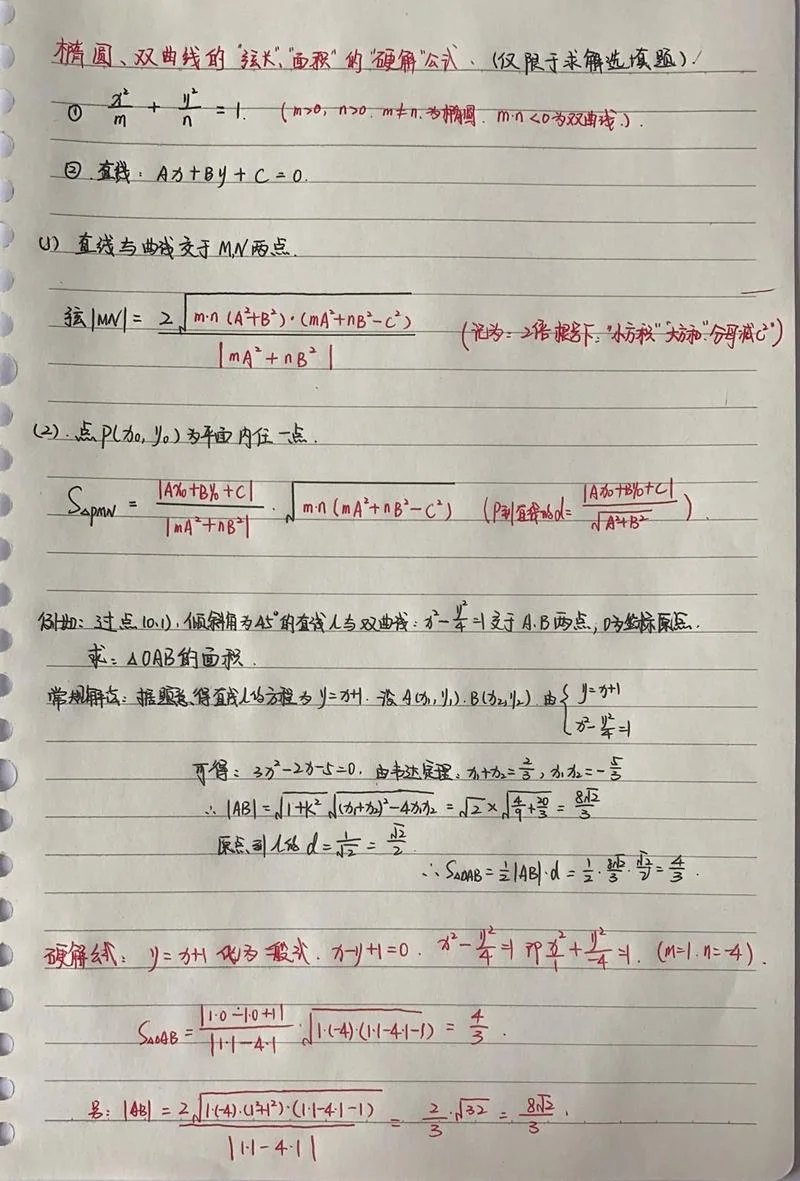 椭圆、双曲线的"弦长"、"面积"的"硬解"公式.(仅限于求解选填题)!
① x²/m + y²/n = 1. (m>0, n>0. m≠n.为椭圆. m·n<0为双曲线.).
② 直线: Ax+By+C=0.
(1) 直线与曲线交于M,N两点.
弦|MN| = 2√(m·n(A²+B²)·(mA²+nB²-C²)) / |mA²+nB²| (记为:2倍根号下:"小方积""大方和"分母减C²")
(2).点P(x₀,y₀)为平面内任一点.
S△PMN = |Ax₀+By₀+C| / |mA²+nB²| · √(m·n(mA²+nB²-C²)) (P到直线的d= |Ax₀+By₀+C| / √(A²+B²) ).
例如:过点(0,1),倾斜角为45°的直线l与双曲线:x²-y²/4=1交于A.B两点,O为坐标原点.
求:△OAB的面积.
常规解法:据题意,得直线l的方程为y=x+1.设A(x₁,y₁).B(x₂,y₂).由{y=x+1
x²-y²/4=1
可得:3x²-2x-5=0.由韦达定理:x₁+x₂=2/3,x₁x₂=-5/3
∴|AB|=√(1+K²)√((x₁+x₂)²-4x₁x₂)=√2×√(4/9+20/3)=8√2/3
原点到l的d=1/√2=√2/2.
∴S△OAB=1/2|AB|·d=1/2·8√2/3·√2/2=4/3.
硬解公式:y=x+1化为一般式.x-y+1=0. x²-y²/4=1即x²/1+y²/-4=1.(m=1.n=-4).
S△OAB = |1·0-1·0+1| / |1·1-4·1| ·√(1·(-4)·(1·1-4·1-1)) = 4/3.
另:|AB| = 2√(1·(-4)·(1²+1²)·(1·1-4·1-1)) / |1·1-4·1| = 2/3·√32 = 8√2/3.